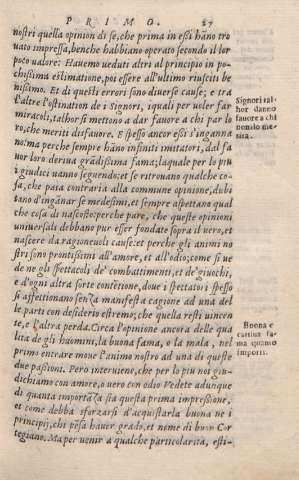 PRIMO. 27
nostri quella opinion di se, che prima in essi hāno tro
uato impressa, benche habbiano operato secondo il lor
poco ualore: Hauemo veduti altri al principio in po-
chissima estimatione, poi essere all'ultimo riusciti be
nissimo. Et di questi errori sono diuerse cause; e tra
l'altre l'ostination de i Signori, i quali per uoler far
miracoli, talhor si mettono a dar fauore a chi par lo
ro, che meriti disfauore. E spesso ancor essi s'inganna
no: ma perche sempre hāno infiniti imitatori, dal fa
uor loro deriua grādissima fama; laquale per lo piu
i giudici uanno seguendo: et se ritrouano qualche co-
sa, che paia contraria alla commune opinione, dubi
tano d'ingānar se medesimi, et sempre aspettano qual
che cosa di nascosto: perche pare, che queste opinioni
uniuersali debbano pur esser fondate sopra il vero, et
nascere da ragioneuoli cause: et perche gli animi no
stri sono prontissimi all'amore, et all'odio; come si ve
de ne gli spettacoli de' combattimenti, et de' giuochi,
e d'ogni altra sorte contētione, doue i spettatori spesso
si affettionano senza manifesta cagione ad una del
le parti con desiderio estremo; che quella resti vincen
te, e l'altra perda. Circa l'opinione ancora delle qua
lità de gli huomini, la buona fama, o la mala, nel
primo entrare moue l'animo nostro ad una di queste
due passioni. Però interuiene, che per lo piu noi giu-
dichiamo con amore, o uero con odio. Vedete adunque
di quanta importāza sia questa prima impressione,
et come debba sforzarsi d'acquistarla buona ne i
principij, chi pēsa hauer grado, et nome di buon Cor
tegiano. Ma per venir a qualche particolarità, esti-
Signori tal
hor danno
fauore a chi
non lo me
rita.
Buona e
cattiua fa-
ma quanto
importi.